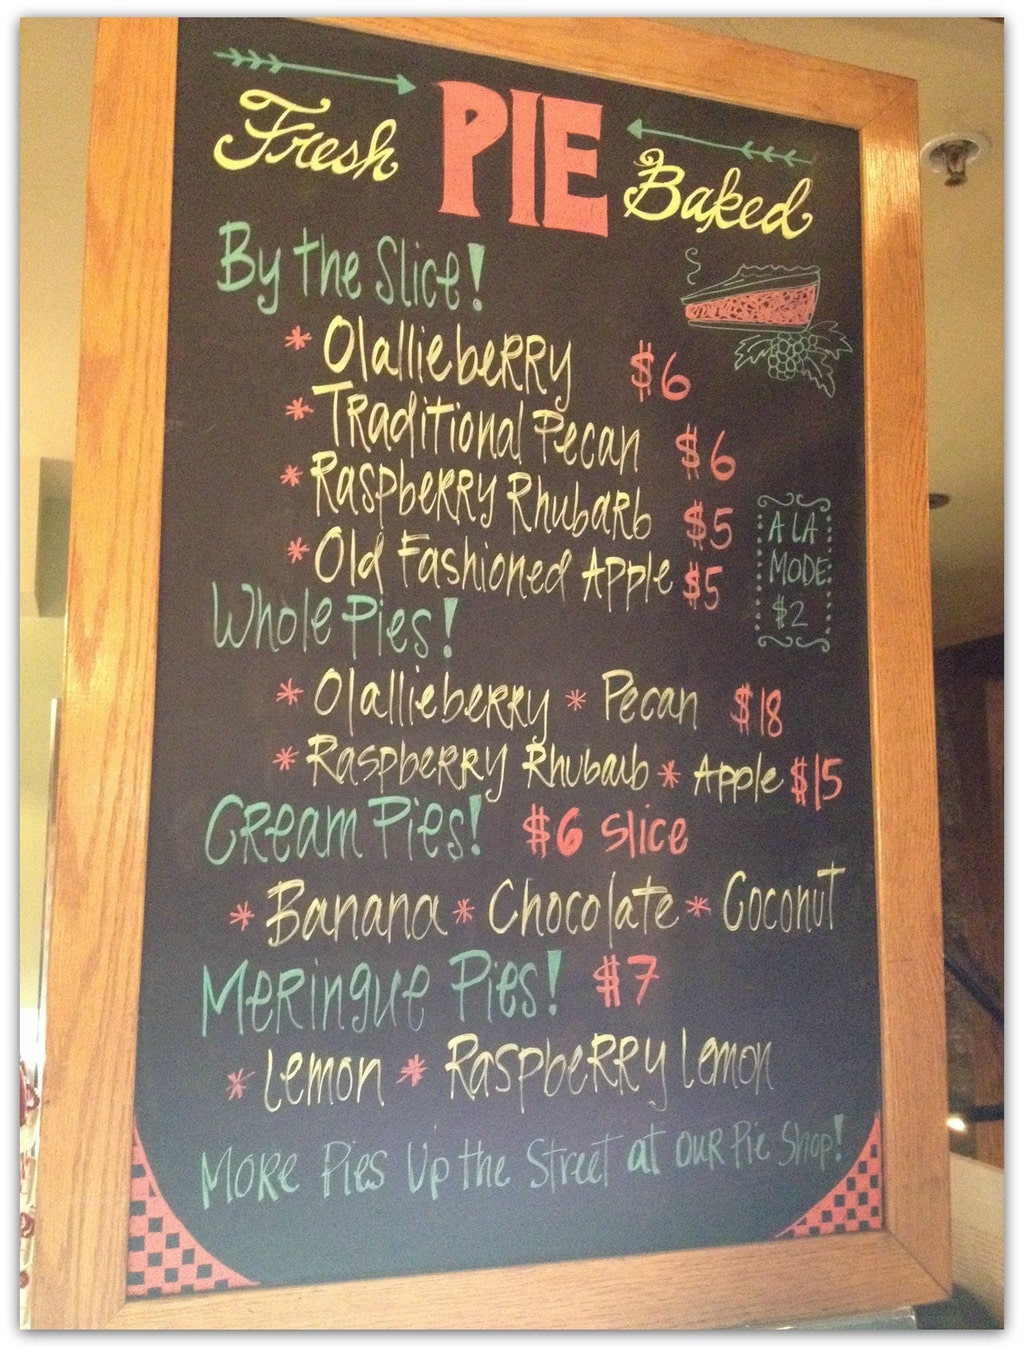 Fresh PIE Baked
By the Slice!
* Olallieberry $6
* Traditional Pecan $6
* Raspberry Rhubarb $5
* Old Fashioned Apple $5
A LA
MODE
$2
Whole Pies!
* Olallieberry * Pecan $18
* Raspberry Rhubarb * Apple $15
Cream Pies! $6 Slice
* Banana * Chocolate * Coconut
Meringue Pies! $7
* Lemon * Raspberry Lemon
More Pies Up the Street at our Pie Shop!